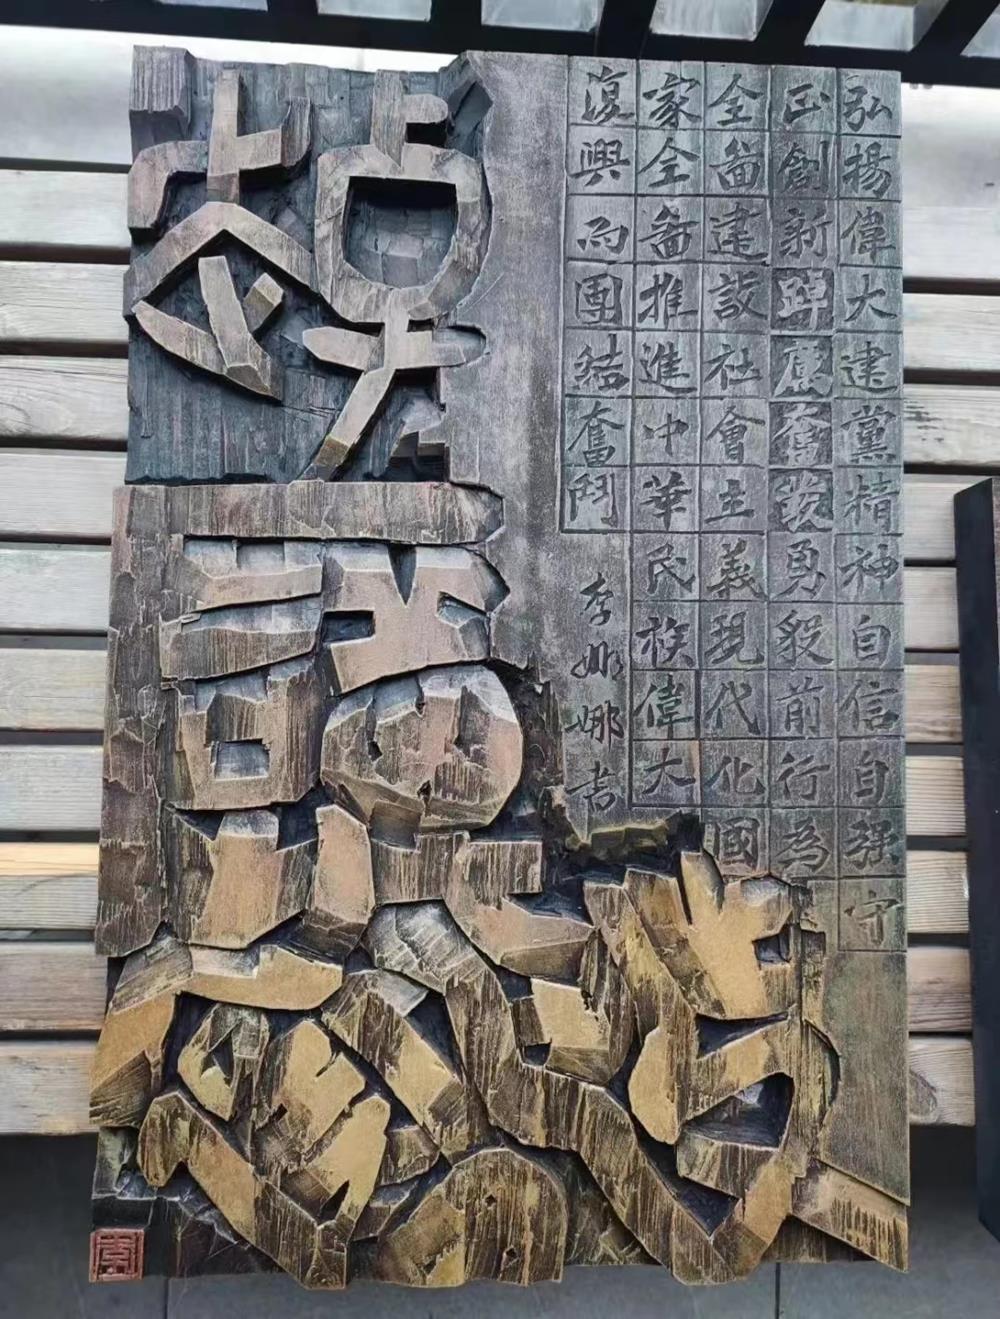 弘揚偉大建黨精神自信自强守
正創新踔厲奮發勇毅前行為
全面建設社會主義現代化國
家全面推進中華民族偉大
復興而團結奮鬥